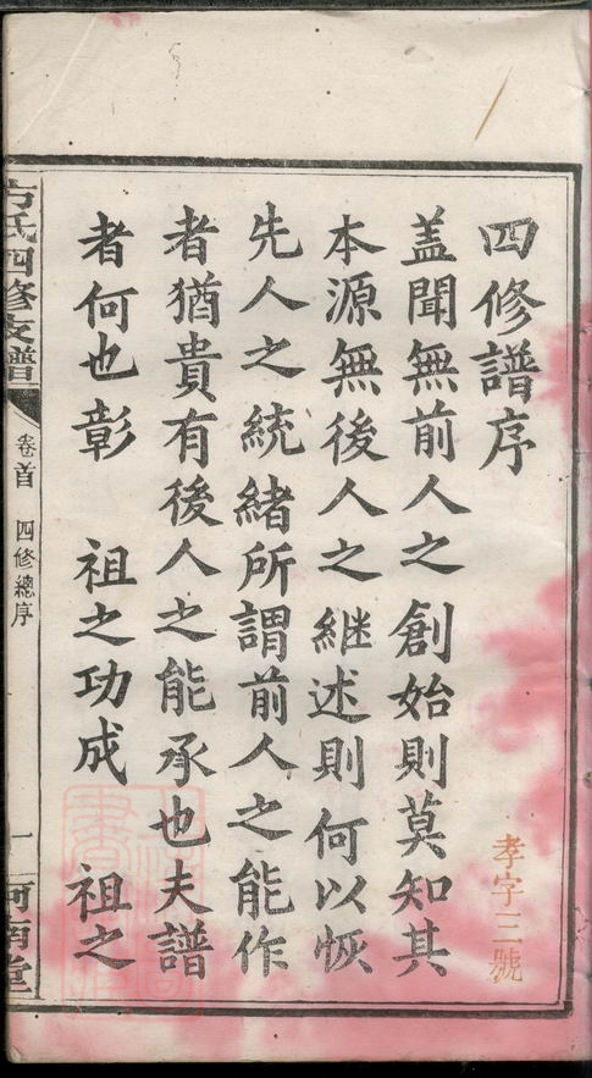 四修譜序
孝字三號
盖聞無前人之創始則莫知其
本源無後人之継述則何以恢
先人之統緒所謂前人之能作
者猶貴有後人之能承也夫譜
者何也彰 祖之功成 祖之
方氏四修支譜 卷首 四修總序 一 河南堂